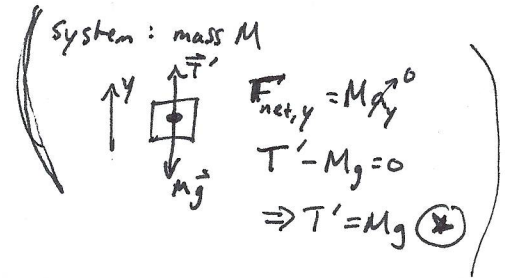 system : mass M
y
T⃗'
Mg⃗
F_net,y = Ma_y → 0
T' - Mg = 0
⇒ T' = Mg ✱